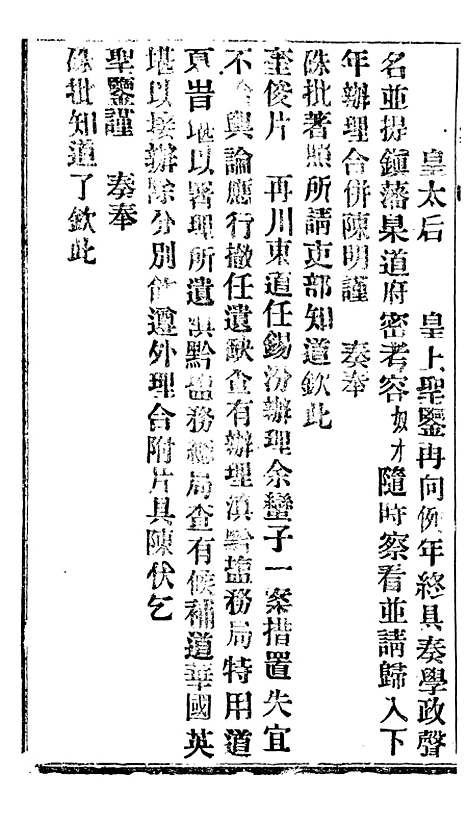 皇太后 皇上聖鑒再向例年終具奏學政聲
名並提鎮藩臬道府密考容奴才隨時察看並請歸入下
年辦理合併陳明謹 奏奉
硃批著照所請吏部知道欽此
奎俊片 再川東道任錫汾辦理余蠻子一案措置失宜
不合輿論應行撤任遺缺查有辦理滇黔鹽務局特用道
夏旹堪以署理所遺滇黔鹽務總局查有候補道華國英
堪以接辦除分別飭遵外理合附片具陳伏乞
聖鑒謹 奏奉
硃批知道了欽此